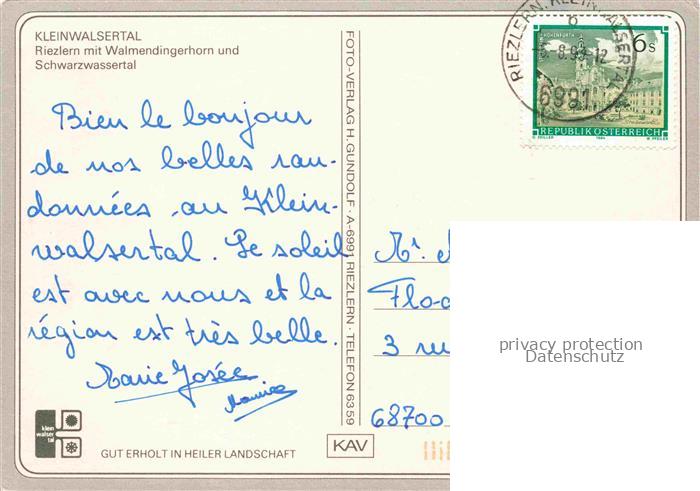 KLEINWALSERTAL
Riezlern mit Walmendingerhorn und
Schwarzwassertal
Bien le bonjour
de nos belles ran-
données au Klein-
walsertal. Le soleil
est avec nous et la
région est très belle.
Marie Josée
Maurice
klein
walser
tal
GUT ERHOLT IN HEILER LANDSCHAFT
KAV
FOTO-VERLAG H. GUNDOLF · A-6991 RIEZLERN · TELEFON 6359
RIEZLERN, KLEINWALSERTAL
b
-8.93-12
6991
6 S
REPUBLIK ÖSTERREICH
Mr.
3 rue
68700
privacy protection
Datenschutz